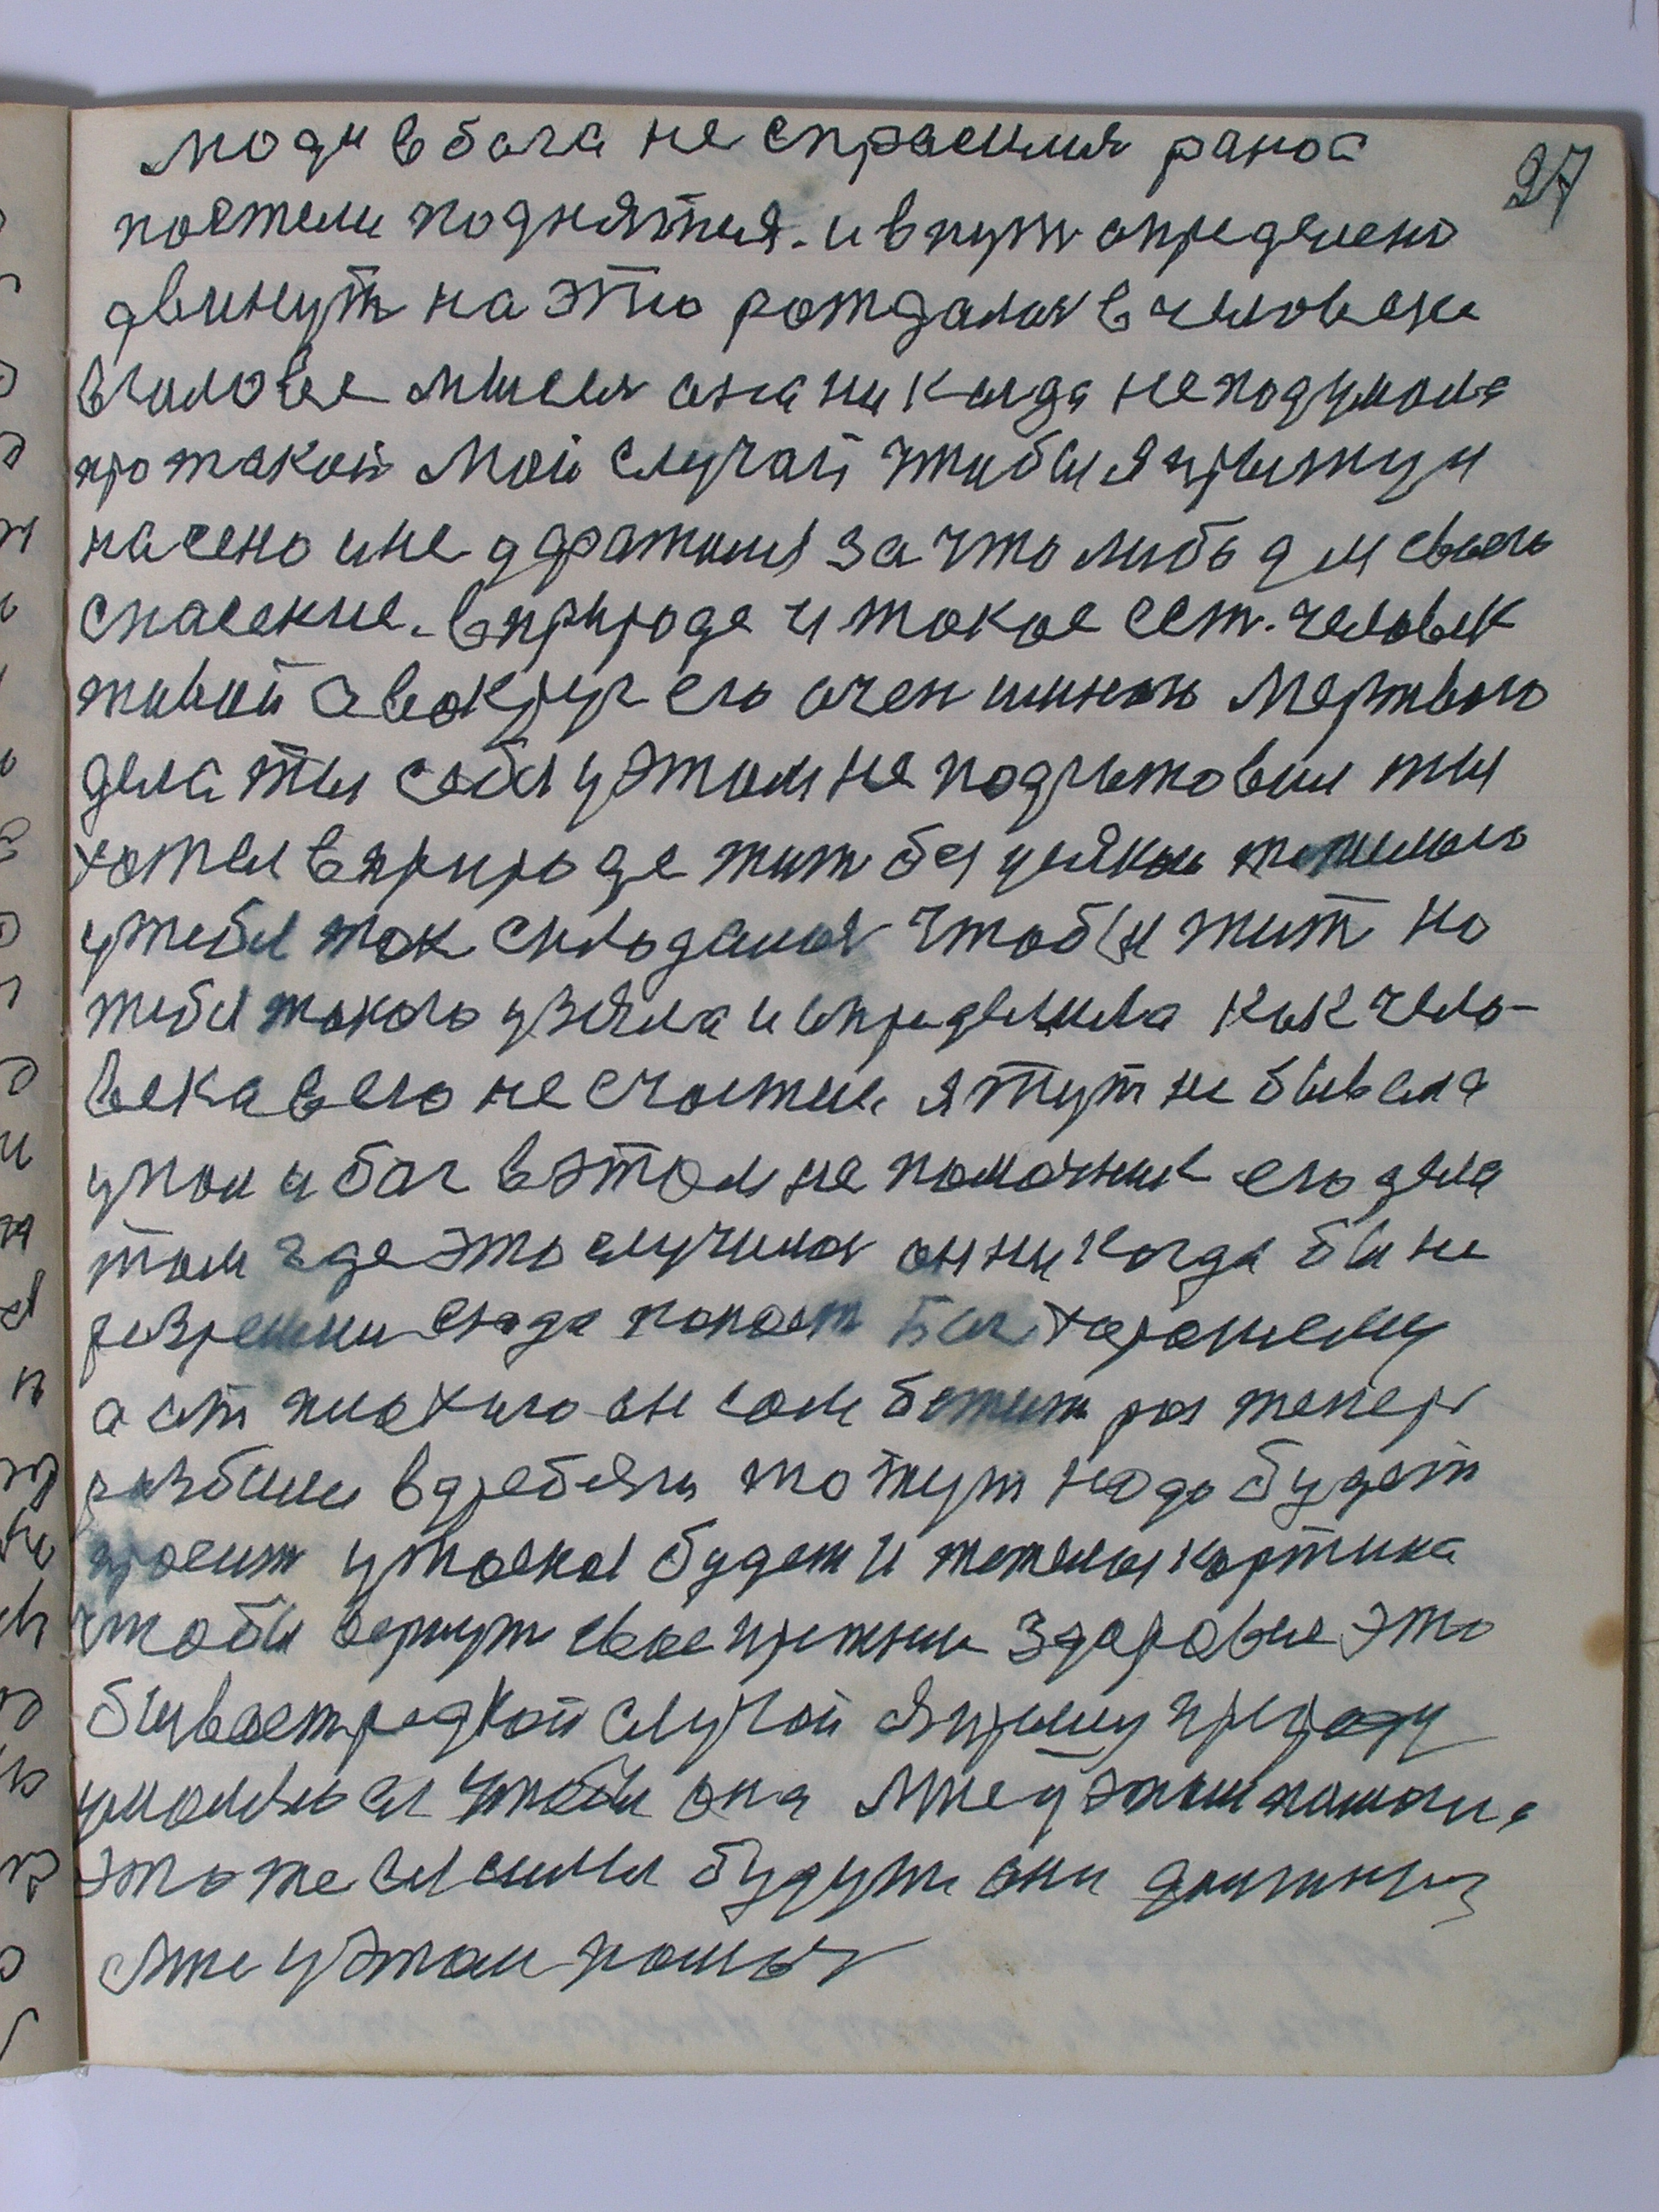 27
люди в бога не спрасилис раной
постели поднятся. и в пут определено
двинут на это рождалас в человека
в голове мисля она ни когда не подумала
про такой мой случай чтобы я прыжу и
на сено и не одержался за что либо для своего
спасение. в природе и такое ест. человек
живой а вокруг его очен много мертвого
дела ты себя у этом не подготовил ты
хотел в природе жит без усякого тежелого
у тебя так складалос чтобы жит но
тебя такого узяла и определила как чело-
века в его не счастие я тут не бывала
упал и бог в этом не помочник его дела
там где это случилос он ни когда бы не
разрешил сюда попаст Бог хорошему
а от плохого он сам бежит раз теперь
разбили в дребезги то тут надо будет
просит у такой будет и тежелая картина
чтобы вернут свое прежние здоровие это
бывает редкой случай я прошу природу
умоляю ея чтобы она мне у этим помогла
это же ея силы будут они должны
мне у этом помоч